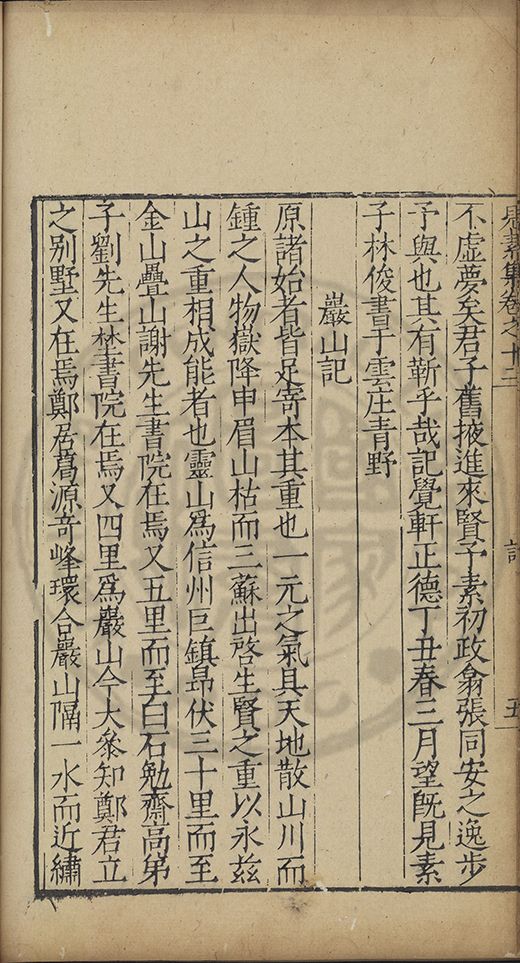 集卷之十三 記 五
不虛夢矣君子舊掖進來賢予素初政翕張同安之逸步
予與也其有靳乎哉記覺軒正德丁丑春三月望旣見素
子林俊書于雲庄青野
巖山記
原諸始者皆足寄本其重也一元之氣具天地散山川而
鍾之人物嶽降申眉山枯而三蘇出啓生賢之重以永玆
山之重相成能者也靈山爲信州巨鎮昻伏三十里而至
金山疊山謝先生書院在焉又五里而至白石勉齋高弟
子劉先生埜書院在焉又四里爲巖山今大叅知鄭君立
之別墅又在焉鄭居葛源奇峰環合巖山隔一水而近繡